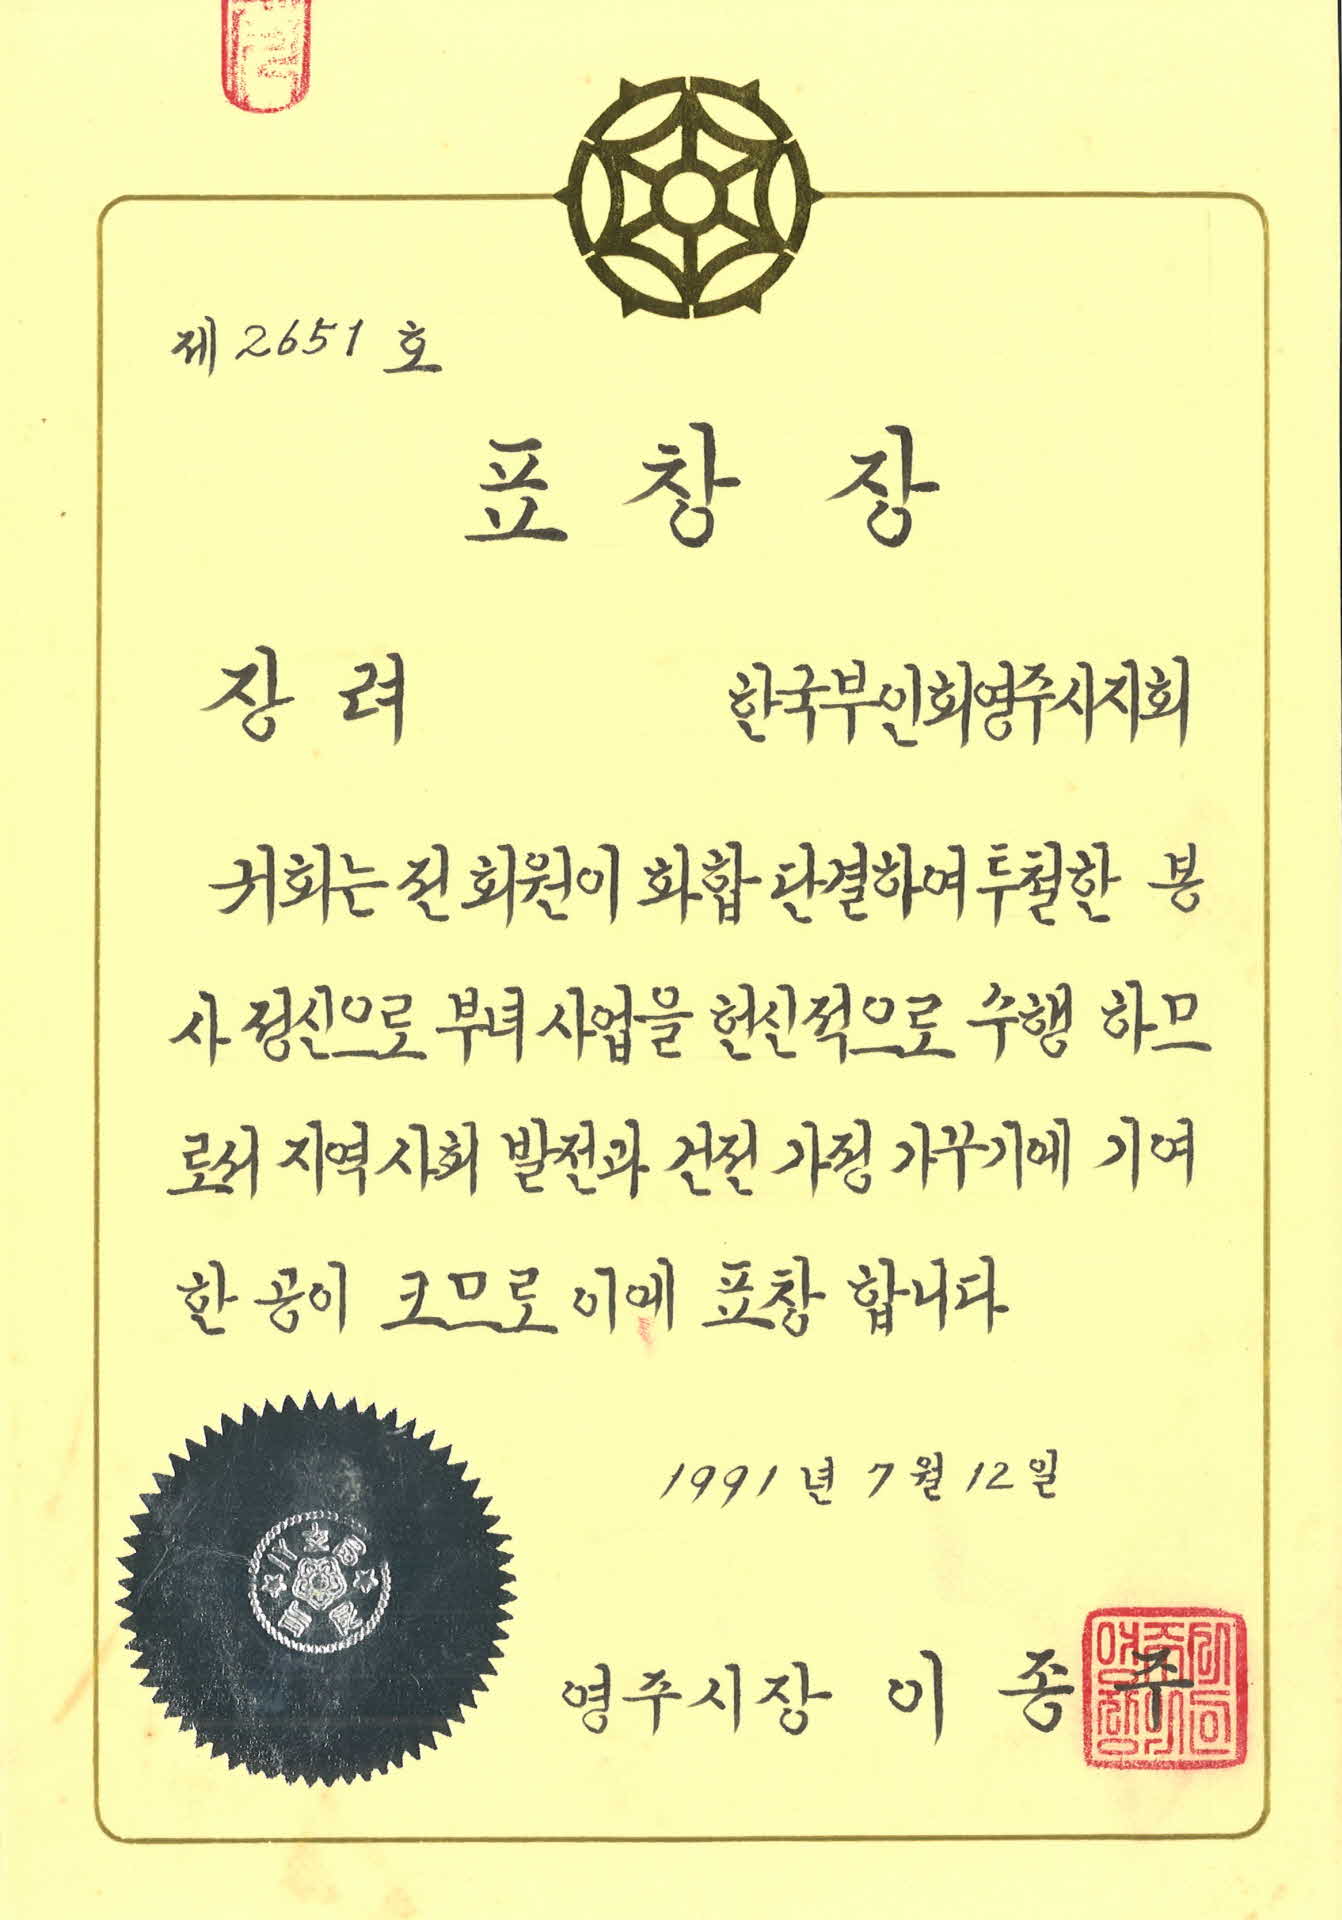 제 2651 호
표 창 장
장 려 한국부인회영주시지회
귀회는 전 회원이 화합 단결하여 투철한 봉
사 정신으로 부녀 사업을 헌신적으로 수행 하므
로서 지역 사회 발전과 건전 가정 가꾸기에 기여
한 공이 크므로 이에 표창 합니다
1991 년 7 월 12 일
영주시장 이 종 주